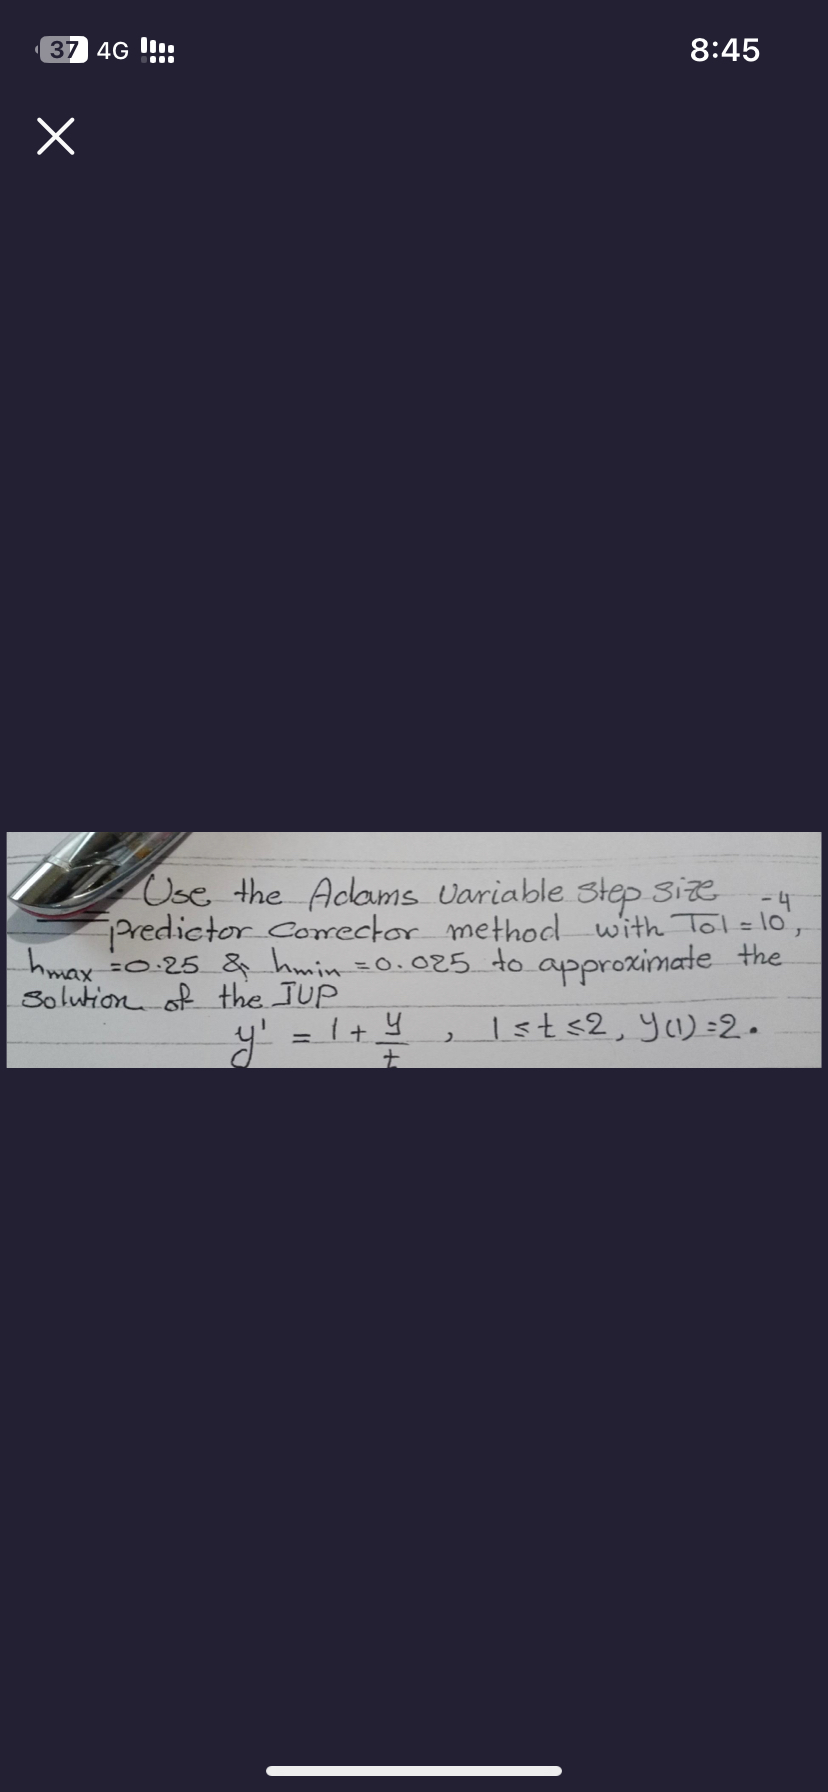 37 4G
8:45
Use the Adams Variable step size
predictor corrector method with Tol = 10^-4,
hmax = 0.25 & hmin = 0.025 to approximate the
solution of the IVP
y' = 1 + y/t , 1 ≤ t ≤ 2, y(1) = 2.